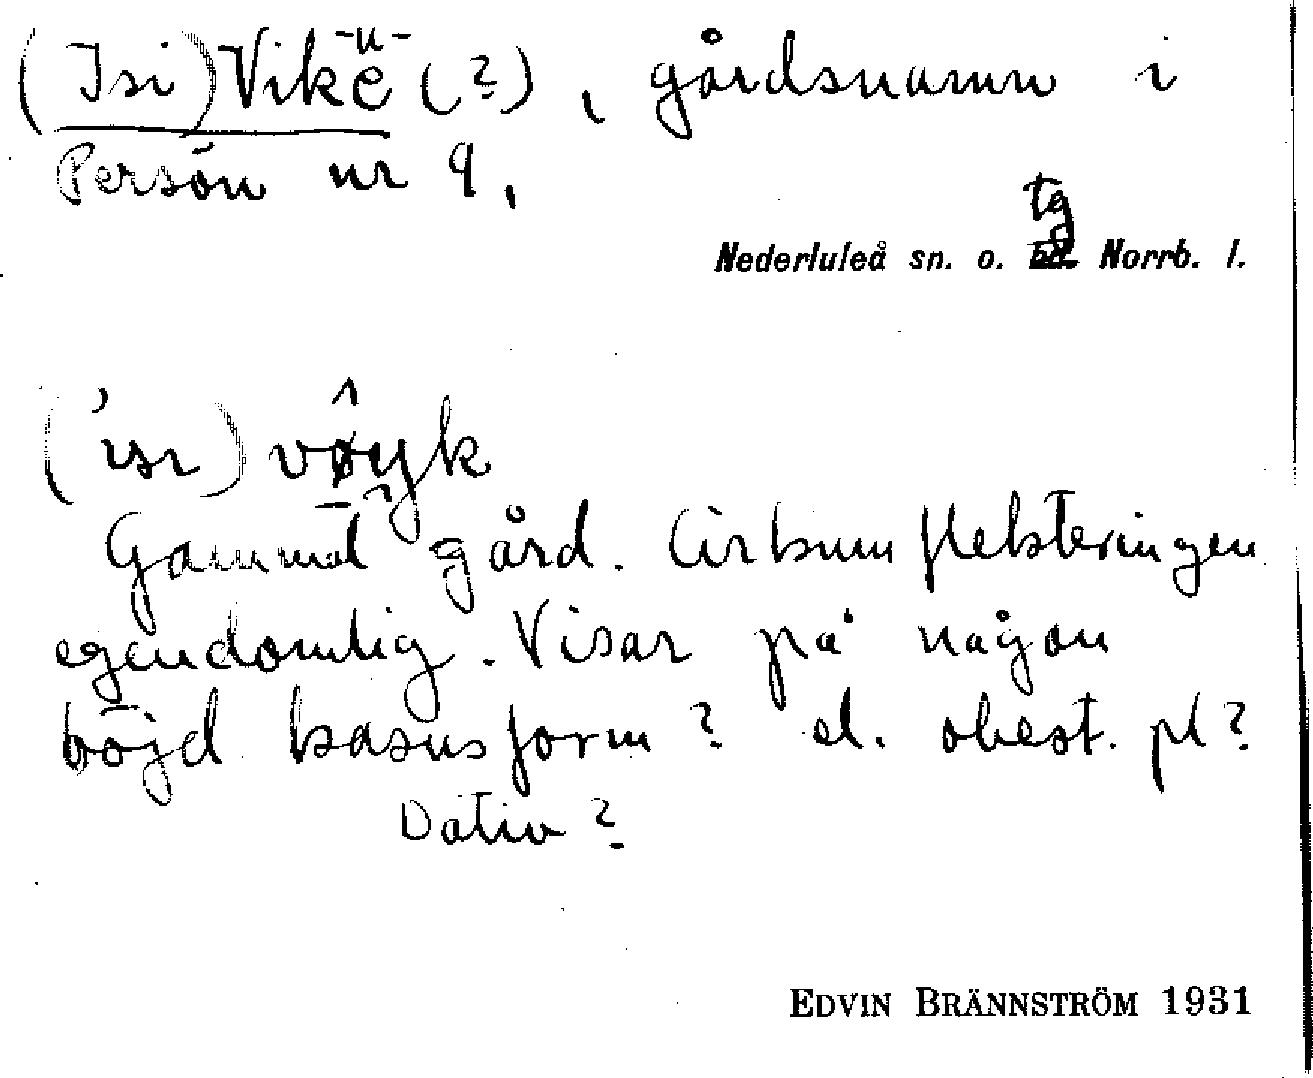 (Isi) Vike -u- (?), gårdsnamn i
Persön nr 9,
tg
Nederluleå sn. o. Norrb. l.
('isı) vôyk
Gammal gård. Cirkumflekteringen
egendomlig. Visar på någon
böjd kasusform? el. obest. pl?
Dativ?
EDVIN BRÄNNSTRÖM 1931